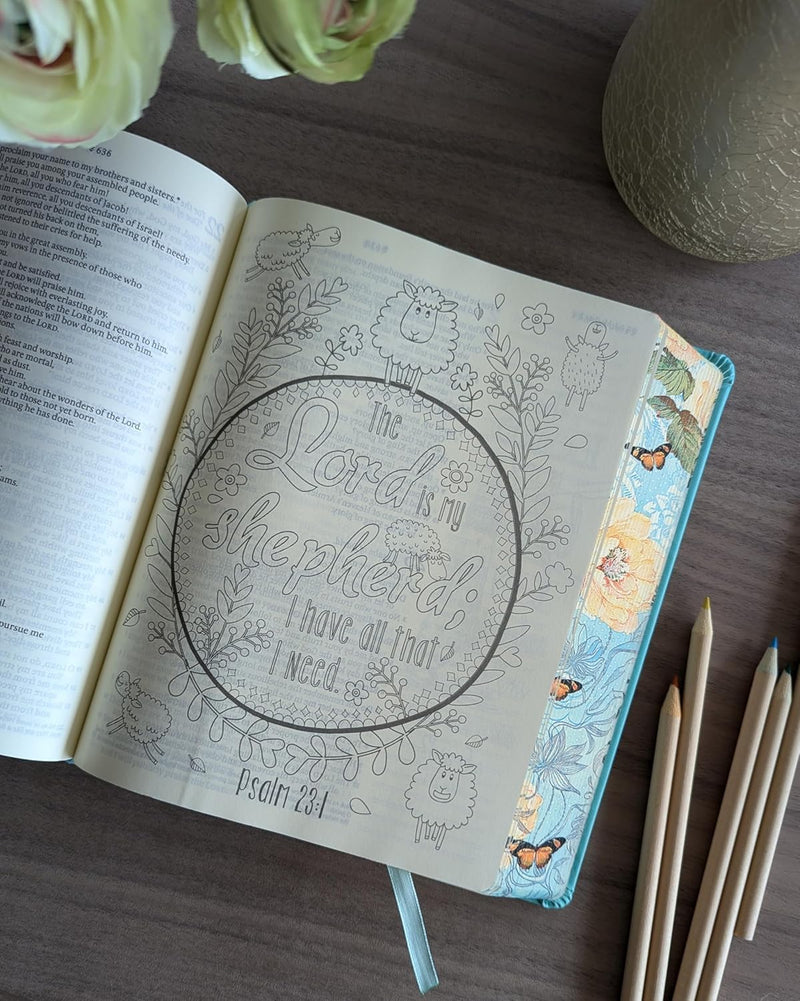 636
proclaim your name to my brothers and sisters.*
praise you among your assembled people.
the LORD, all you who fear him!
him, all you descendants of Jacob!
him reverence, all you descendants of Israel!
not ignored or belittled the suffering of the needy.
not turned his back on them,
listened to their cries for help.
you in the great assembly.
my vows in the presence of those who
you.
and be satisfied.
the LORD will praise him.
rejoice with everlasting joy.
acknowledge the LORD and return to him.
the nations will bow down before him.
to the LORD
feast and worship.
are mortal,
as dust.
hear about the wonders of the Lord.
to those not yet born.
everything he has done.
pursue me
The
Lord is my
shepherd;
I have all that
I need.
Psalm 23:1